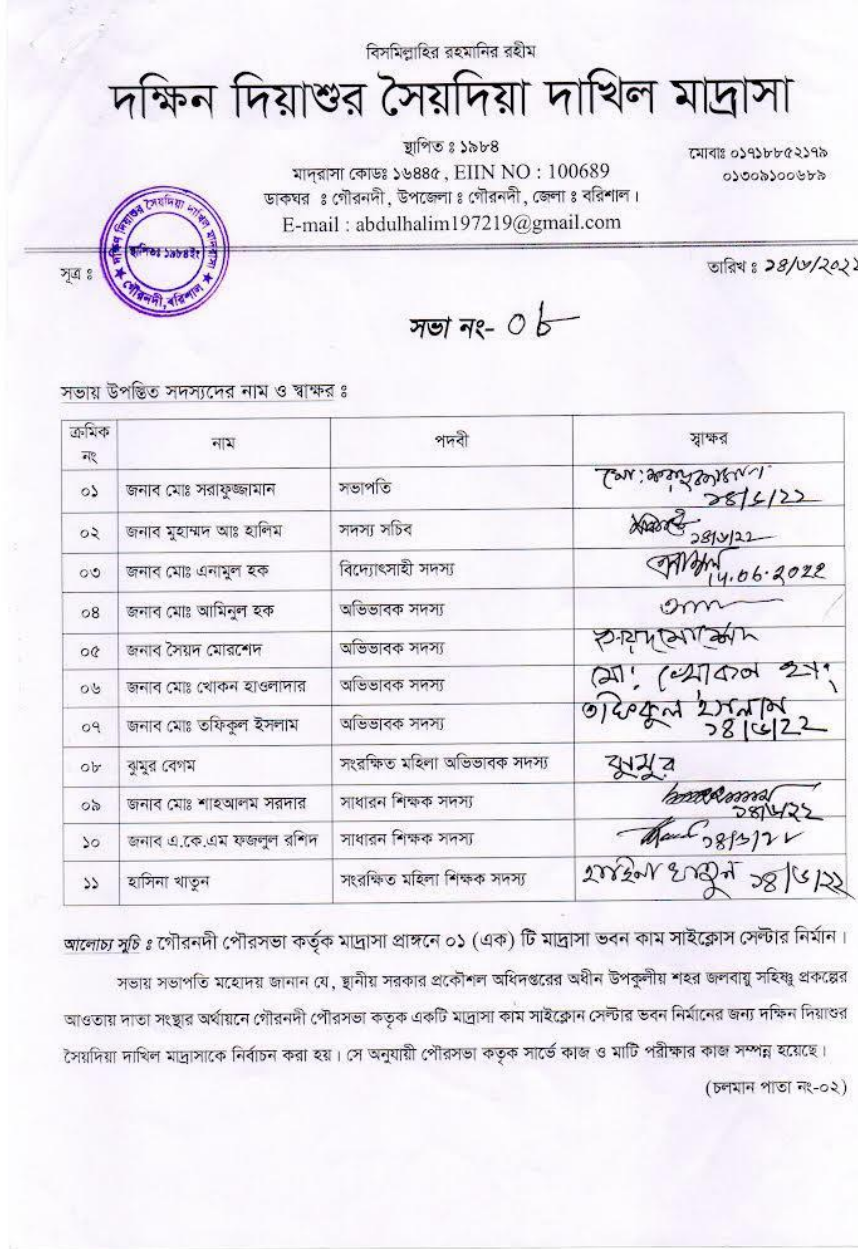 বিসমিল্লাহির রহমানির রহীম
দক্ষিন দিয়াশুর সৈয়দিয়া দাখিল মাদ্রাসা
স্থাপিত ঃ ১৯৮৪
মোবাঃ ০১৭১৮৮৫২১৭৯
মাদ্রাসা কোডঃ ১৬৪৪৫ , EIIN NO : 100689
০১৩০৯১০০৬৮৯
ডাকঘর ঃ গৌরনদী, উপজেলা ঃ গৌরনদী, জেলা ঃ বরিশাল।
E-mail : abdulhalim197219@gmail.com
দক্ষিন দিয়াশুর সৈয়দিয়া দাখিল মাদরাসা
স্থাপিতঃ ১৯৮৪ইং
গৌরনদী, বরিশাল
সূত্র ঃ
তারিখ ঃ ১৪/৬/২০২২
সভা নং- ০৮
সভায় উপস্তিত সদস্যদের নাম ও স্বাক্ষর ঃ
ক্রমিক নং নাম পদবী স্বাক্ষর
০১ জনাব মোঃ সরাফুজ্জামান সভাপতি ১৪/৬/২২
০২ জনাব মুহাম্মদ আঃ হালিম সদস্য সচিব ১৪/৬/২২
০৩ জনাব মোঃ এনামুল হক বিদ্যোৎসাহী সদস্য 14.06.2022
০৪ জনাব মোঃ আমিনুল হক অভিভাবক সদস্য
০৫ জনাব সৈয়দ মোরশেদ অভিভাবক সদস্য
০৬ জনাব মোঃ খোকন হাওলাদার অভিভাবক সদস্য মো: খোকন হাং
০৭ জনাব মোঃ তফিকুল ইসলাম অভিভাবক সদস্য তফিকুল ইসলাম ১৪/৬/২২
০৮ ঝুমুর বেগম সংরক্ষিত মহিলা অভিভাবক সদস্য ঝুমুর
০৯ জনাব মোঃ শাহআলম সরদার সাধারন শিক্ষক সদস্য ১৪/৬/২২
১০ জনাব এ.কে.এম ফজলুল রশিদ সাধারন শিক্ষক সদস্য ১৪/৬/২২
১১ হাসিনা খাতুন সংরক্ষিত মহিলা শিক্ষক সদস্য হাসিনা খাতুন ১৪/৬/২২
আলোচ্য সুচি ঃ গৌরনদী পৌরসভা কর্তৃক মাদ্রাসা প্রাঙ্গনে ০১ (এক) টি মাদ্রাসা ভবন কাম সাইক্লোস সেল্টার নির্মান।
সভায় সভাপতি মহোদয় জানান যে, স্থানীয় সরকার প্রকৌশল অধিদপ্তরের অধীন উপকুলীয় শহর জলবায়ু সহিষ্ণু প্রকল্পের
আওতায় দাতা সংস্থার অর্থায়নে গৌরনদী পৌরসভা কতৃক একটি মাদ্রাসা কাম সাইক্লোন সেল্টার ভবন নির্মানের জন্য দক্ষিন দিয়াশুর
সৈয়দিয়া দাখিল মাদ্রাসাকে নির্বাচন করা হয়। সে অনুযায়ী পৌরসভা কতৃক সার্ভে কাজ ও মাটি পরীক্ষার কাজ সম্পন্ন হয়েছে।
(চলমান পাতা নং-০২)